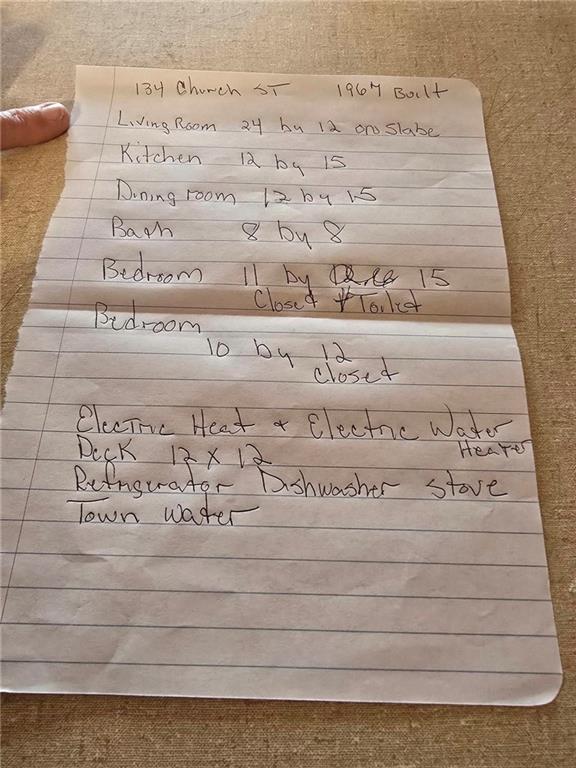 134 Church ST 1967 Built
Living Room 24 by 12 on Slabe
Kitchen 12 by 15
Dining room 12 by 15
Bath 8 by 8
Bedroom 11 by 15
Closet + Toilet
Bedroom
10 by 12
closet
Electric Heat + Electric Water
Heater
Deck 12 x 12
Refrigerator Dishwasher stove
Town water